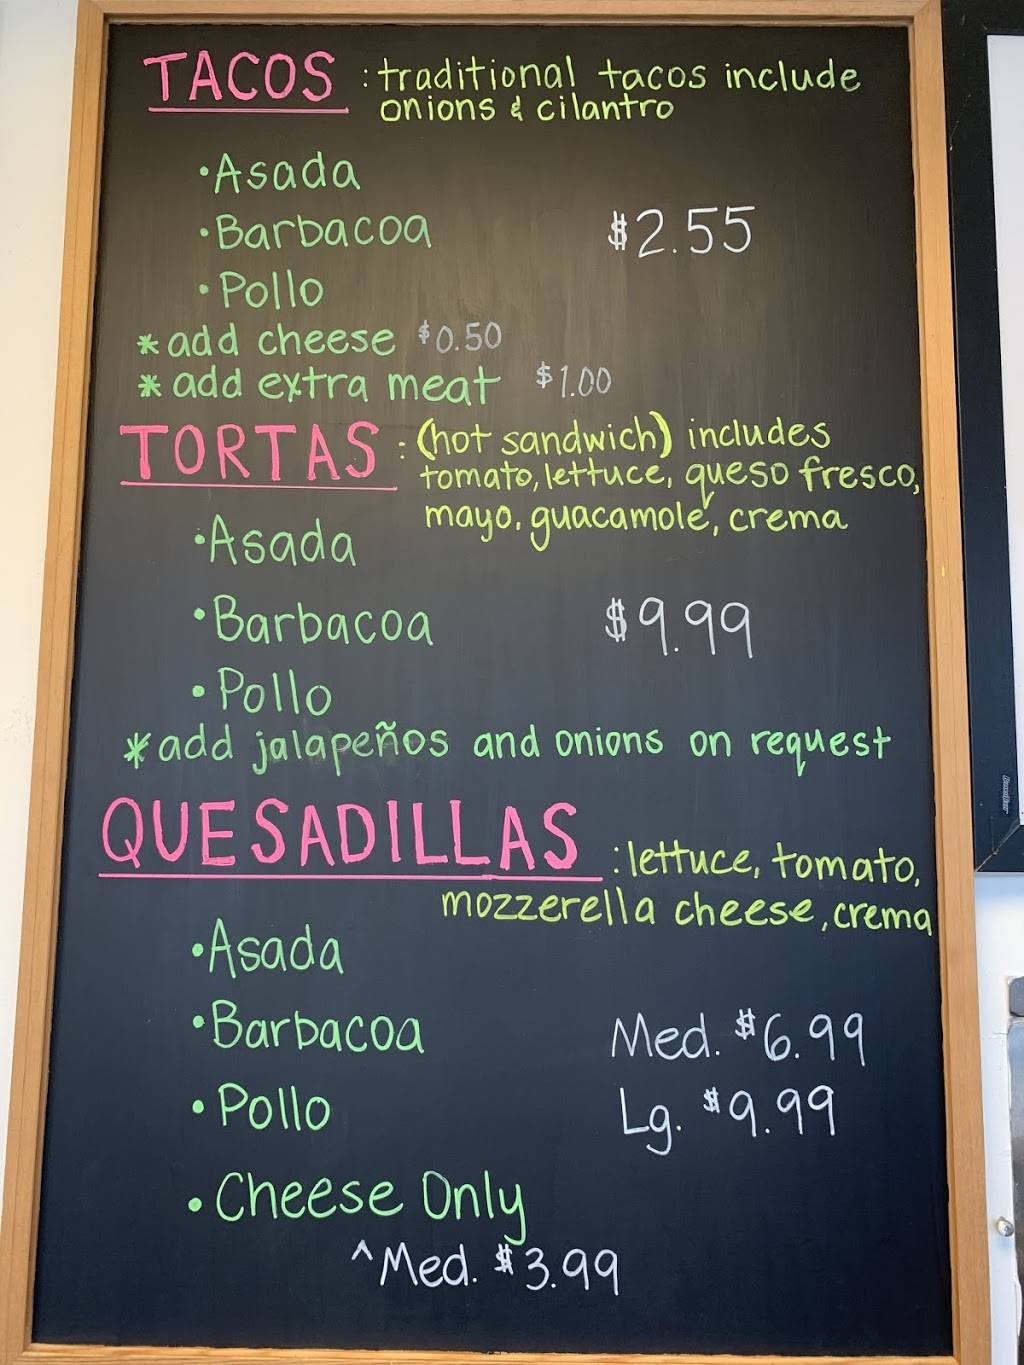 TACOS : traditional tacos include
onions & cilantro
• Asada
• Barbacoa $2.55
• Pollo
* add cheese $0.50
* add extra meat $1.00
TORTAS : (hot sandwich) includes
tomato, lettuce, queso fresco,
mayo, guacamole, crema
• Asada
• Barbacoa $9.99
• Pollo
* add jalapeños and onions on request
QUESADILLAS : lettuce, tomato,
mozzerella cheese, crema
• Asada
• Barbacoa Med. $6.99
• Pollo Lg. $9.99
• Cheese Only
^Med. $3.99